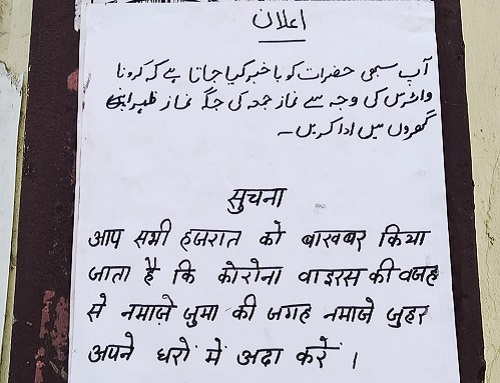 اعلان
آپ سبھی حضرات کو باخبر کیا جاتا ہے کہ کرونا
وائرس کی وجہ سے نماز جمعہ کی جگہ نماز ظہر اپنے
گھروں میں ادا کریں۔
सुचना
आप सभी हजरात को बाखबर किया
जाता है कि कोरोना वाइरस की वजह
से नमाज़े जुमा की जगह नमाजे जुहर
अपने घरों में अदा करें ।